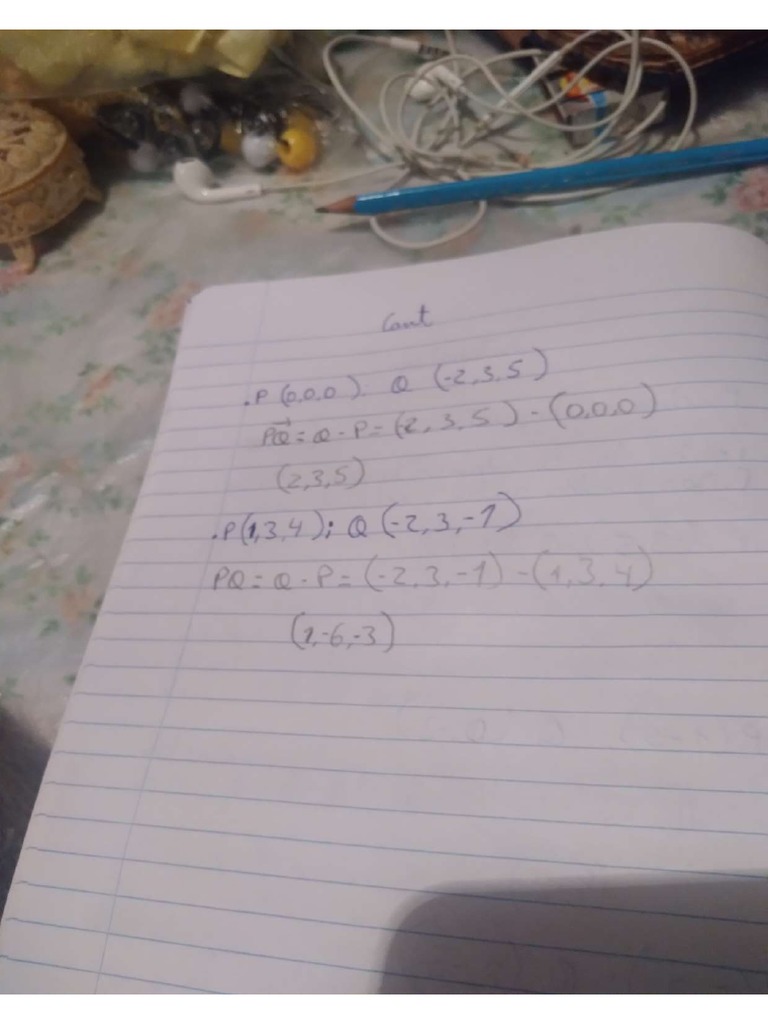 Cont
.P (0,0,0). Q (-2,3,5)
PQ = Q - P = (-2,3,5) - (0,0,0)
(2,3,5)
.P(1,3,4); Q (-2,3,-1)
PQ = Q - P = (-2,3,-1) - (1,3,4)
(1,-6,-3)